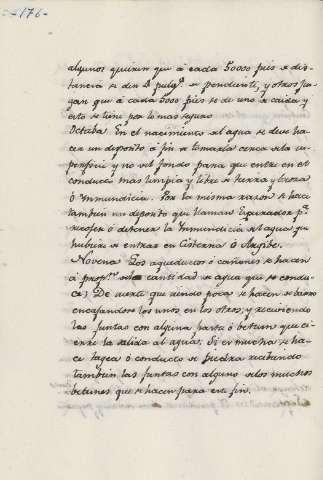 176
algunos quieren que á cada 5000 pies de dis-
tancia se den 2 pulg.s de pendiente, y otros juz-
gan que á cada 5000 pies se dé uno de caida, y
esto se tiene por lo mas seguro
Octaba. En el nacimiento del agua se debe ha-
cer un deposito á fin de tomarla cerca de la su-
perficie y no del fondo para que entre en el
conducto mas limpia y libre de tierra y broza
ó Inmundicia. Por la misma razon se hace
tambien un deposito que llaman Depurador p.a
recoger ó detener la Inmundicia del agua que
hubiere de entrar en Cisterna ó Axgibe.
Novena. Los aqueductos ó cañones se hacen
á prop.on de la cantidad de agua que se condu-
ce; De suerte que siendo poca se hacen de barro
encajandose los unos en los otros; y recibiendo
las juntas con alguna pasta ó betun que ci-
erre la salida al agua. Si es mucha se ha-
ce tagea ó conducto de piedra recibiendo
tambien las juntas con alguno de los muchos
betunes que se hacen para este fin.